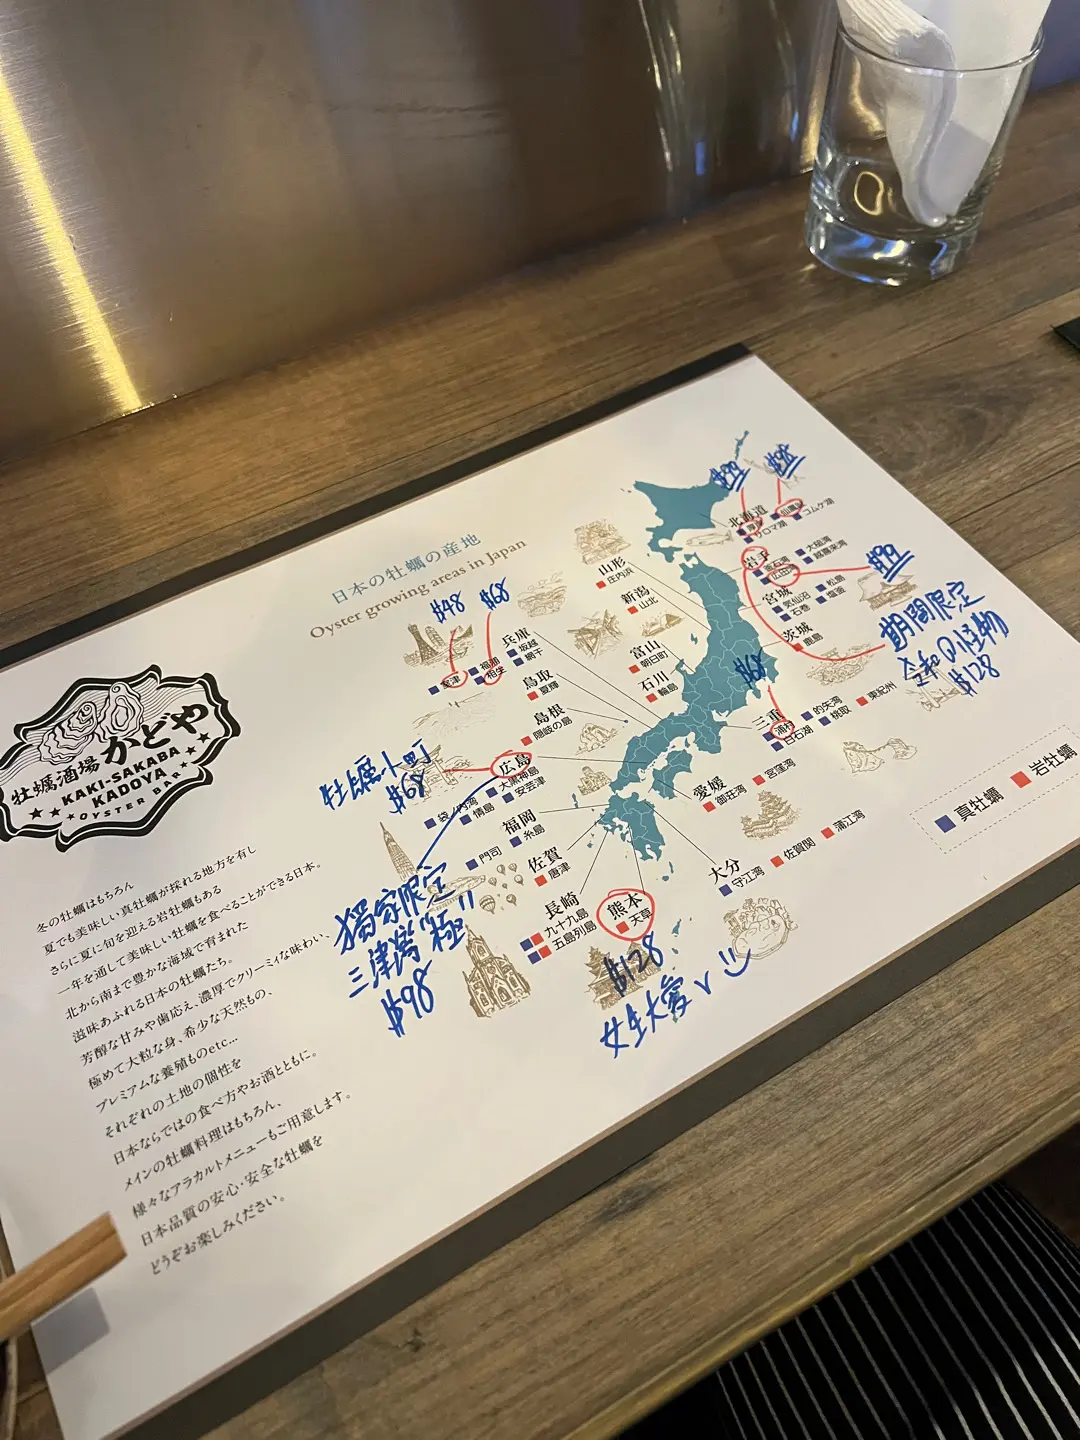 日本の牡蠣の産地
Oyster growing areas in Japan
牡蠣酒場 かどや
KAKI-SAKABA
KADOYA
OYSTER BAR
冬の牡蠣はもちろん
夏でも美味しい真牡蠣が採れる地方を有し
さらに夏に旬を迎える岩牡蠣もある
一年を通して美味しい牡蠣を食べることができる日本。
北から南まで豊かな海域で育まれた
滋味あふれる日本の牡蠣たち。
芳醇な甘みや歯応え、濃厚でクリーミィな味わい、
極めて大粒な身、希少な天然もの、
プレミアムな養殖ものetc...
それぞれの土地の個性を
日本ならではの食べ方やお酒とともに。
メインの牡蠣料理はもちろん、
様々なアラカルトメニューもご用意します。
日本品質の安心・安全な牡蠣を
どうぞお楽しみください。
北海道
厚岸
仙鳳趾
サロマ湖
コムケ湖
岩手
大槌湾
広田湾
越喜来湾
宮城
気仙沼
松島
石巻
塩釜
茨城
鹿島
山形
庄内浜
新潟
山北
富山
朝日町
石川
輪島
$48
$68
兵庫
室津
福浦
坂越
相生
網干
鳥取
夏輝
島根
隠岐の島
牡蠣小町
$68
広島
大黒神島
内湾
情島
安芸津
福岡
門司
糸島
佐賀
唐津
長崎
九十九島
五島列島
熊本
天草
$128
女生大愛
大分
守江湾
佐賀関
蒲江湾
愛媛
御荘湾
宮窪湾
$68
三重
浦村
的矢湾
東紀州
白石湖
桃取
期間限定
$128
獨家限定
三津灣"極"
$98
真牡蠣
岩牡蠣